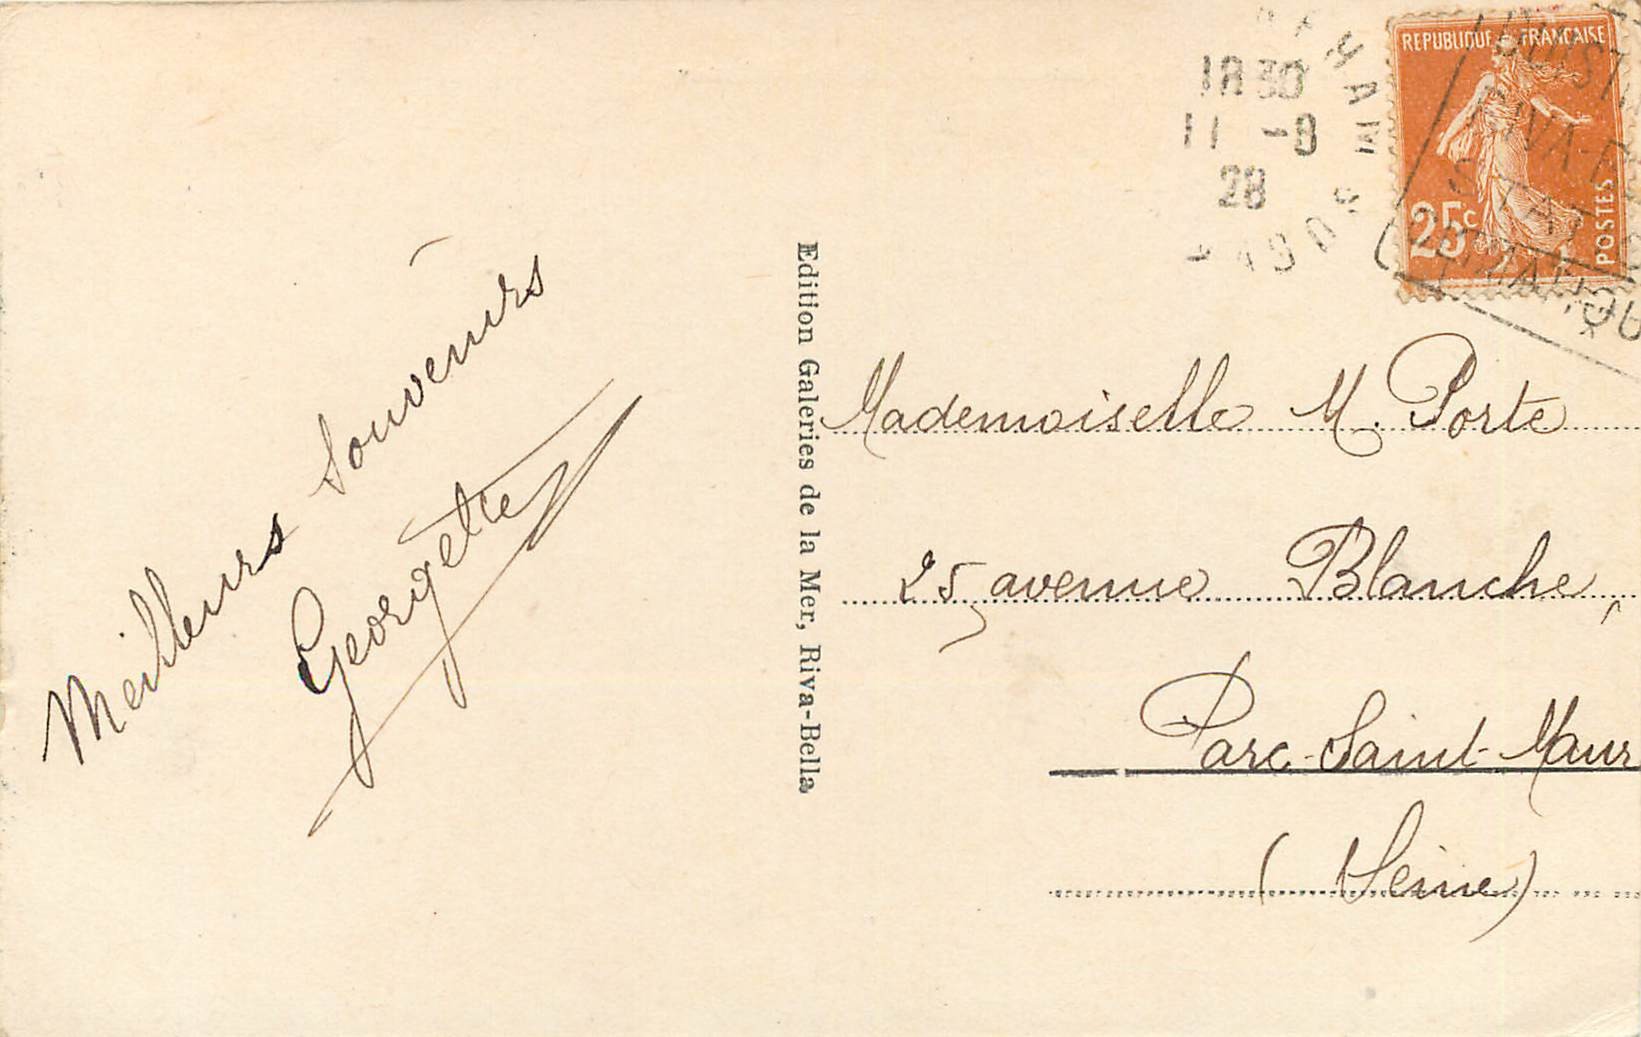 Meilleurs Souvenirs
Georgette
Edition Galeries de la Mer, Riva-Bella
18 30
11 -8
28
REPUBLIQUE FRANCAISE
25c
POSTES
Mademoiselle M. Porte
25, avenue Blanche,
Parc-Saint-Maur
(Seine)